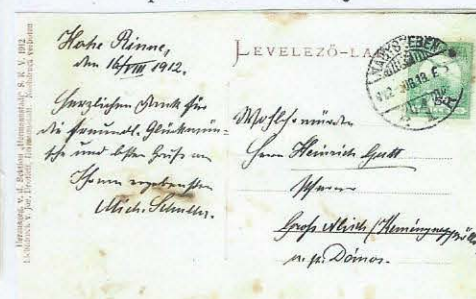 Hohe Rinne,
den 16/VIII 1912.
Herzlichen Dank für
die freundl. Glückwün-
sche und besten Grüße von
Ihrem ergebensten
Mich. Schuller.
LEVELEZŐ-LA
NAGYSZEBEN
Wohlehrwürden
Herrn Heinrich Gutt
Pfarrer
Groß Alisch
u. p. Dános.